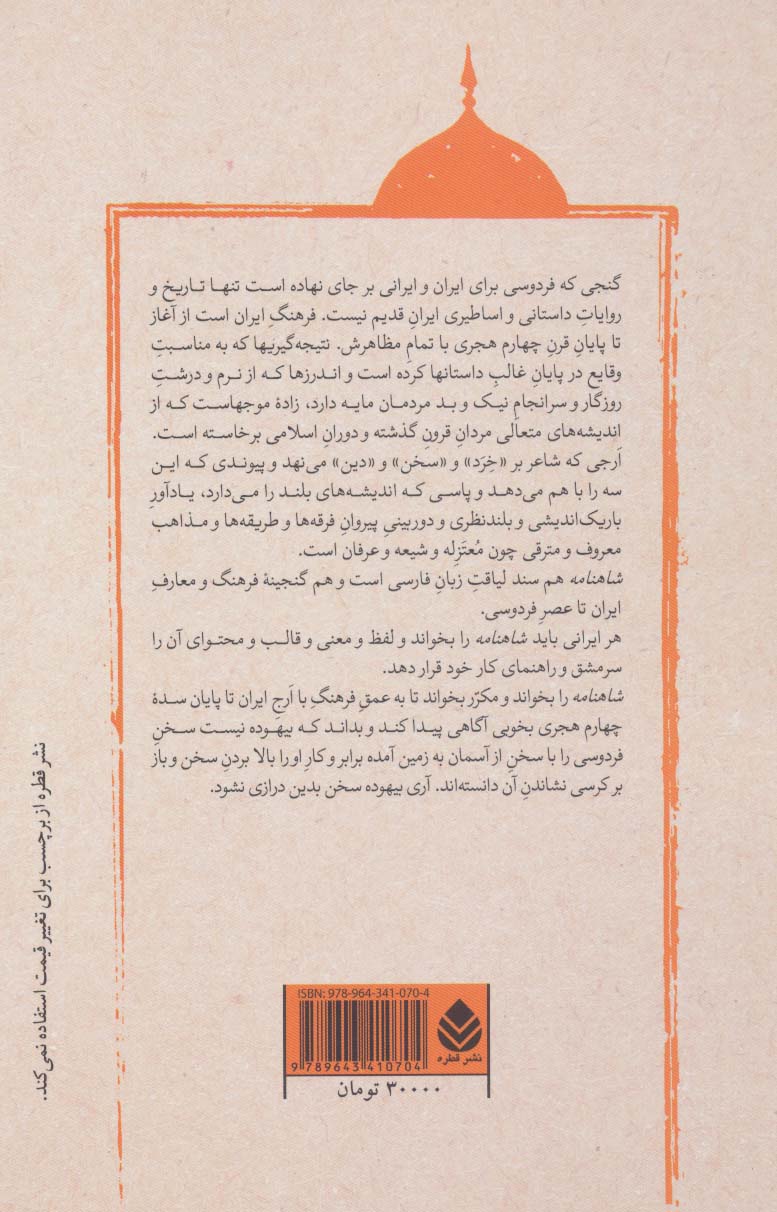 گنجی که فردوسی برای ایران و ایرانی بر جای نهاده است تنها تاریخ و
روایاتِ داستانی و اساطیری ایرانِ قدیم نیست. فرهنگِ ایران است از آغاز
تا پایانِ قرنِ چهارم هجری با تمامِ مظاهرش. نتیجه‌گیریها که به مناسبتِ
وقایع در پایانِ غالبِ داستانها کرده است و اندرزها که از نرم و درشتِ
روزگار و سرانجامِ نیک و بد مردمان مایه دارد، زادهٔ موجهاست که از
اندیشه‌های متعالی مردانِ قرونِ گذشته و دورانِ اسلامی برخاسته است.
اَرجی که شاعر بر «خِرَد» و «سخن» و «دین» می‌نهد و پیوندی که این
سه را با هم می‌دهد و پاسی که اندیشه‌های بلند را می‌دارد، یادآورِ
باریک‌اندیشی و بلندنظری و دوربینیِ پیروانِ فرقه‌ها و طریقه‌ها و مذاهب
معروف و مترقی چون مُعتَزِله و شیعه و عرفان است.
شاهنامه هم سند لیاقتِ زبانِ فارسی است و هم گنجینهٔ فرهنگ و معارفِ
ایران تا عصرِ فردوسی.
هر ایرانی باید شاهنامه را بخواند و لفظ و معنی و قالب و محتوای آن را
سرمشق و راهنمای کار خود قرار دهد.
شاهنامه را بخواند و مکرّر بخواند تا به عمقِ فرهنگِ با اَرجِ ایران تا پایان سدهٔ
چهارم هجری بخوبی آگاهی پیدا کند و بداند که بیهوده نیست سخنِ
فردوسی را با سخنِ از آسمان به زمین آمده برابر و کارِ او را بالا بردنِ سخن و باز
بر کرسی نشاندنِ آن دانسته‌اند. آری بیهوده سخن بدین درازی نشود.
نشر قطره از برچسب برای تغییر قیمت استفاده نمی‌کند.
ISBN: 978-964-341-070-4
نشر قطره
9 789643 410704
۳۰۰۰۰ تومان